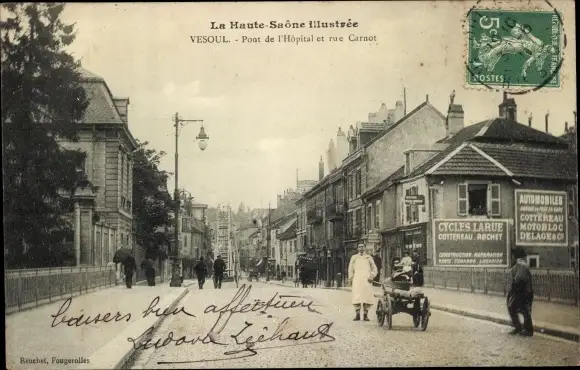 La Haute-Saône illustrée
VESOUL. - Pont de l'Hôpital et rue Carnot
5
POSTES
AUTOMOBILES
COTTEREAU
MOTOBLOC
DELAGE & Cie
CYCLES LARUE
COTTEREAU, ROCHET
baisers bien affectueux
Ludovic
Reuchet, Fougerolles